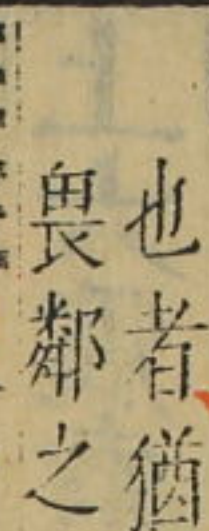 也者猶
畏鄰之